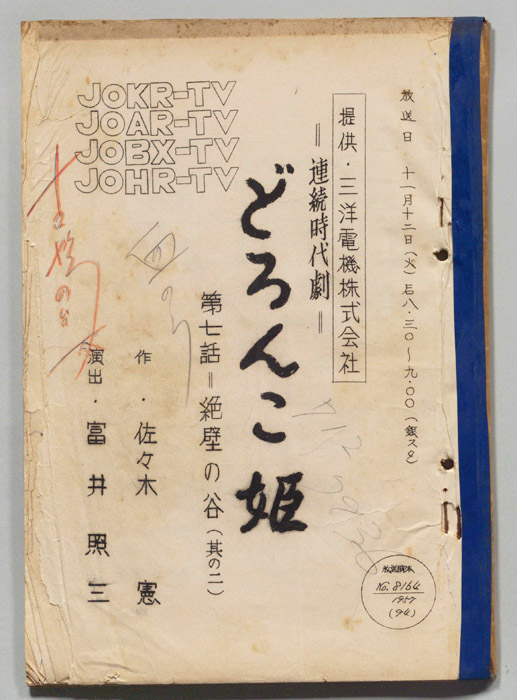 放送日 十一月十二日(火)后八・三〇〜九・〇〇(銀スタ)
提供・三洋電機株式会社
＝連続時代劇＝
どろんこ姫
第七話＝絶壁の谷(其の二)
作・佐々木 憲
演出・富井照三
JOKR-TV
JOAR-TV
JOBX-TV
JOHR-TV
放送脚本
No.8164
1957
(94)